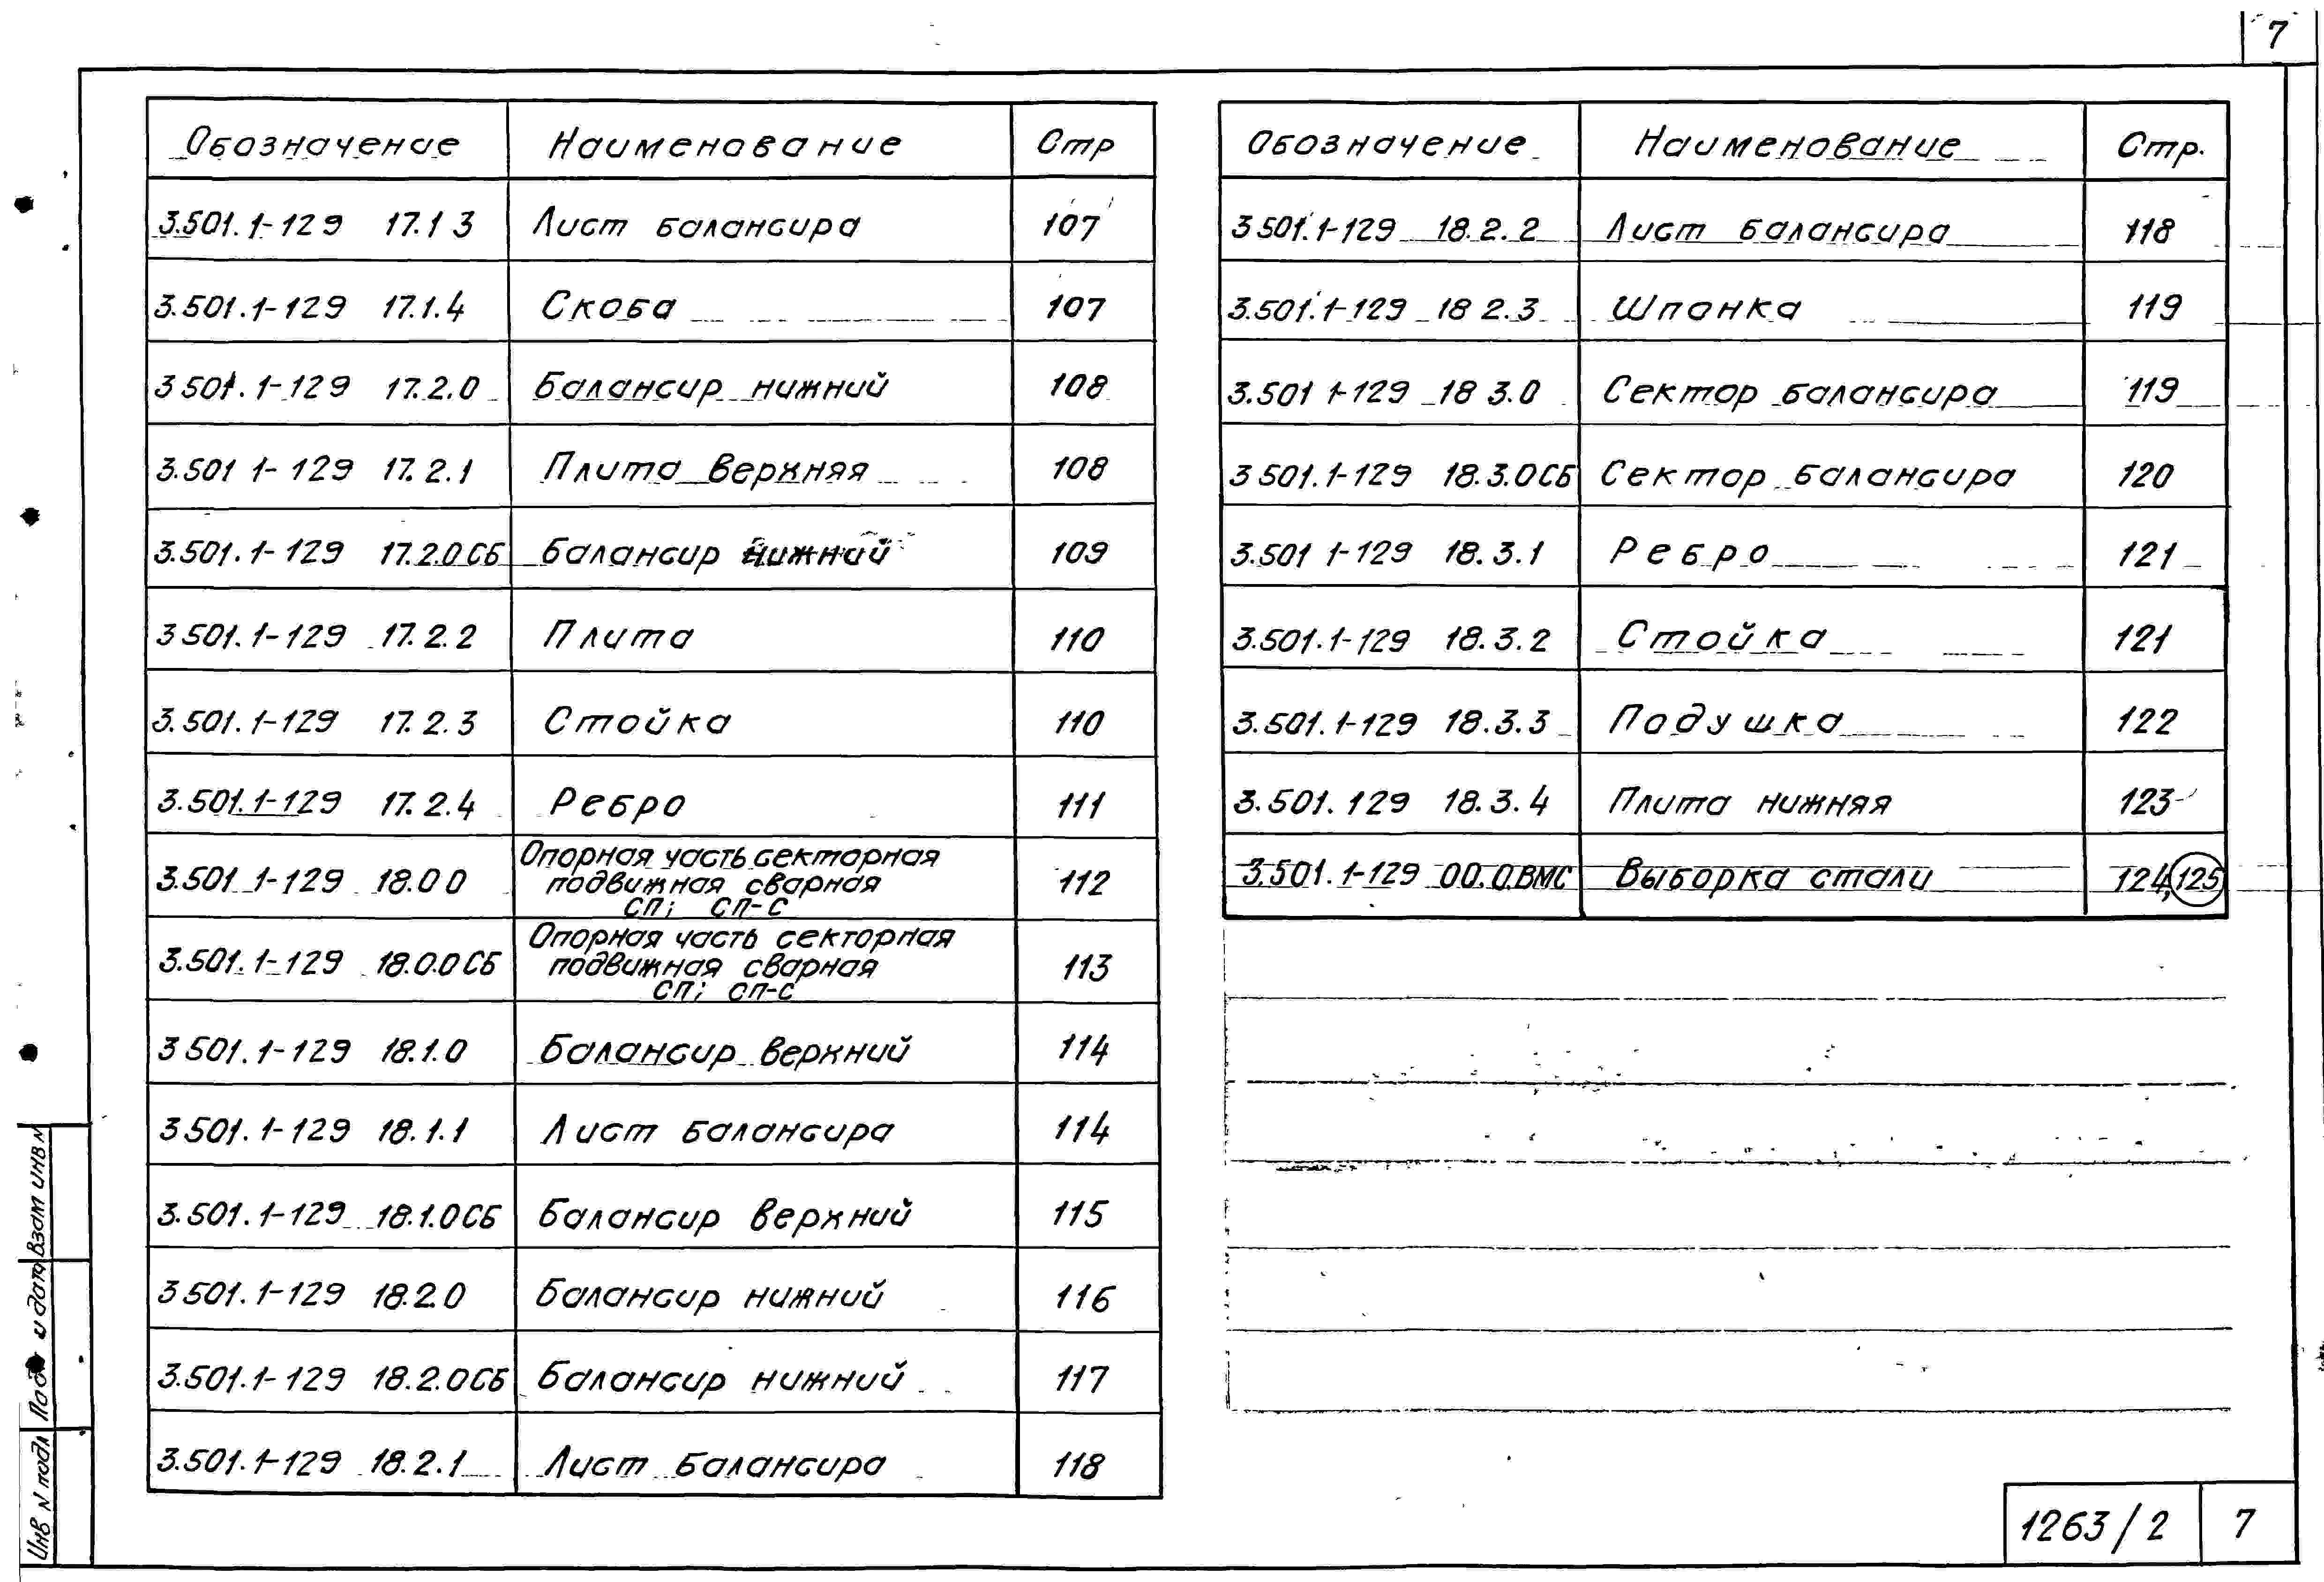 7
Обозначение Наименование Стр
3.501.1-129 17.1 3 Лист балансира 107
3.501.1-129 17.1.4 Скоба 107
3 501.1-129 17.2.0 Балансир нижний 108
3.501 1-129 17.2.1 Плита верхняя 108
3.501.1-129 17.2.0СБ Балансир нижний 109
3 501.1-129 17.2.2 Плита 110
3.501.1-129 17.2.3 Стойка 110
3.501.1-129 17.2.4 Ребро 111
3.501 1-129 18.0 0 Опорная часть секторная
подвижная сварная
СП; СП-С 112
3.501.1-129 18.0.0СБ Опорная часть секторная
подвижная сварная
СП; СП-С 113
3 501.1-129 18.1.0 Балансир верхний 114
3 501.1-129 18.1.1 Лист балансира 114
3.501.1-129 18.1.0СБ Балансир верхний 115
3 501.1-129 18.2.0 Балансир нижний 116
3.501.1-129 18.2.0СБ Балансир нижний 117
3.501.1-129 18.2.1 Лист балансира 118
Обозначение Наименование Стр.
3 501.1-129 18.2.2 Лист балансира 118
3.501.1-129 18 2.3 Шпонка 119
3.501 1-129 18 3.0 Сектор балансира 119
3 501.1-129 18.3.0СБ Сектор балансира 120
3.501 1-129 18.3.1 Ребро 121
3.501.1-129 18.3.2 Стойка 121
3.501.1-129 18.3.3 Подушка 122
3.501.129 18.3.4 Плита нижняя 123
3.501.1-129 00.0.ВМС Выборка стали 124,125
Инв N подл
Подп и дата
Взам инв N
1263/2 7